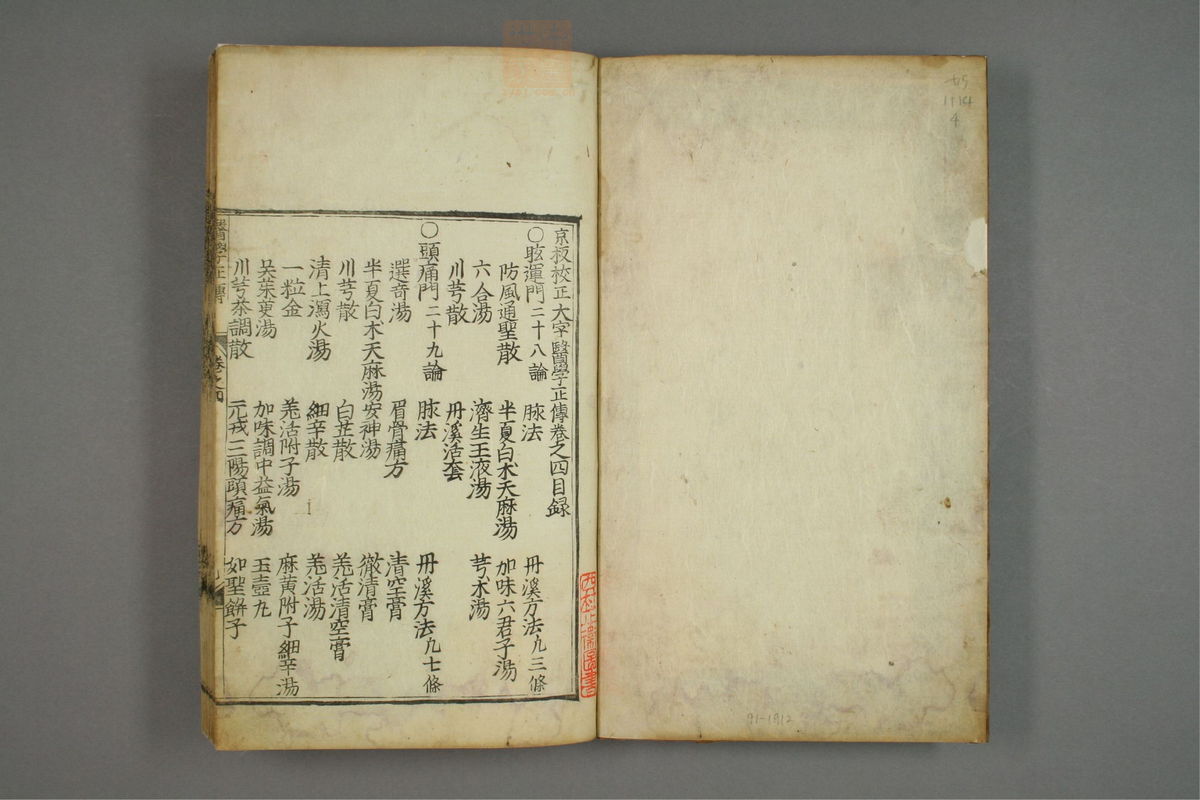 京板校正大字醫學正傳卷之四目録
○眩運門二十八論 脉法 丹溪方法九三條
防風通聖散 半夏白术天麻湯 加味六君子湯
六合湯 濟生玉液湯 芎术湯
川芎散 丹溪活套
○頭痛門二十九論 脉法 丹溪方法九七條
選竒湯 眉骨痛方 清空膏
半夏白术天麻湯 安神湯 徹清膏
川芎散 白芷散 羌活清空膏
清上瀉火湯 細辛散 羌活湯
一粒金 羌活附子湯 麻黄附子細辛湯
吴茱萸湯 加味調中益氣湯 玉壺丸
川芎茶調散 元戎三陽頭痛方 如聖餅子
醫學正傳 卷之四
91-1912